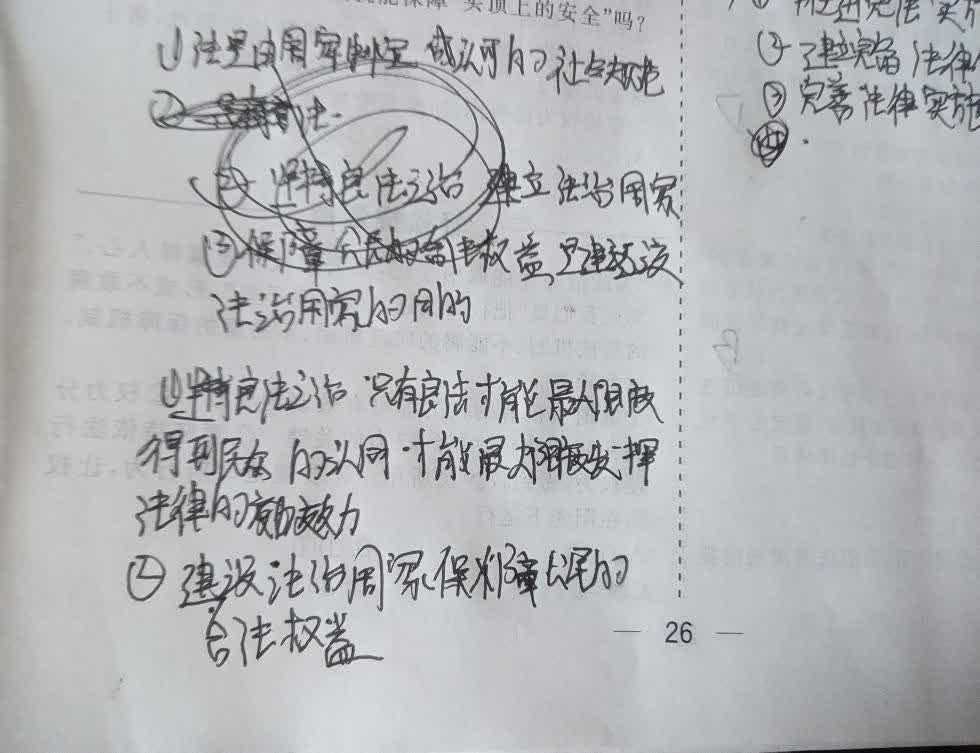 保障“头顶上的安全”吗?
①法是由国家制定 或认可的 社会规范
②法.
②坚持良法之治 建立法治国家
③保障公民的合法权益,是建设
法治国家的目的
①坚持良法之治 只有良法才能最大限度
得到民众的认同.才能最大限度发挥
法律的效力
②建设法治国家,保障公民的
合法权益
26
宪法实
②建立完备法律
③完善法律实施
④.